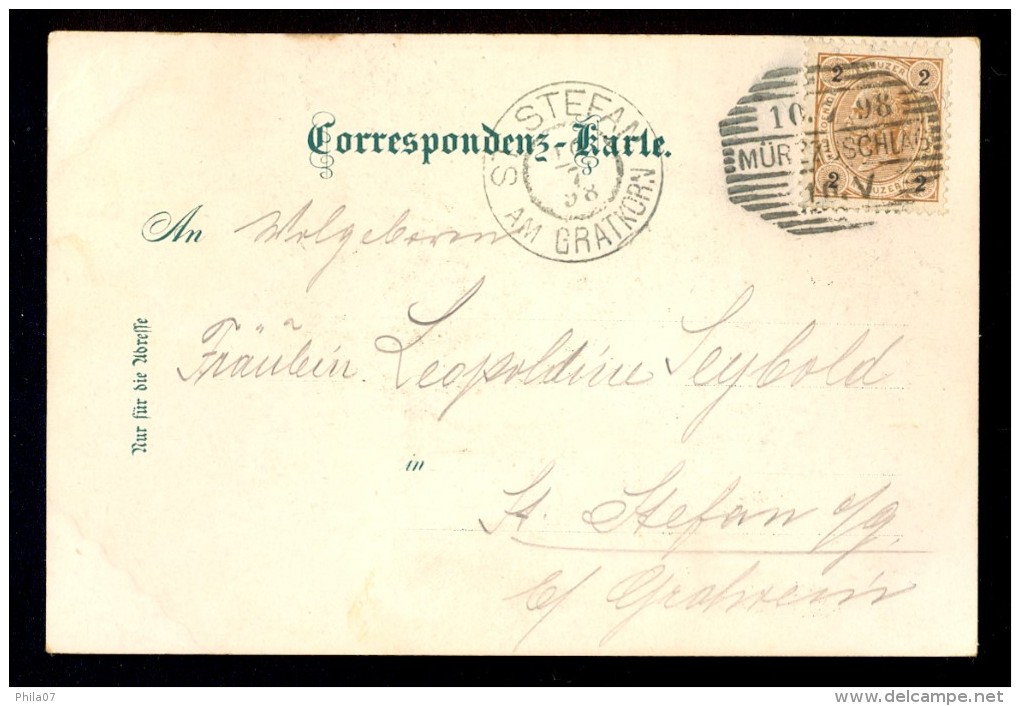 Correspondenz-Karte.
ST. STEFAN
98
AM GRATKORN
KREUZER
2 2
10. 98
MÜRZZUSCHLAG
2 2
10. V
An Wolgeboren
Fräulein Leopoldine Seybold
in
St. Stefan a/g.
b/ Gratwein
Nur für die Adresse
Phila07
www.delcampe.net